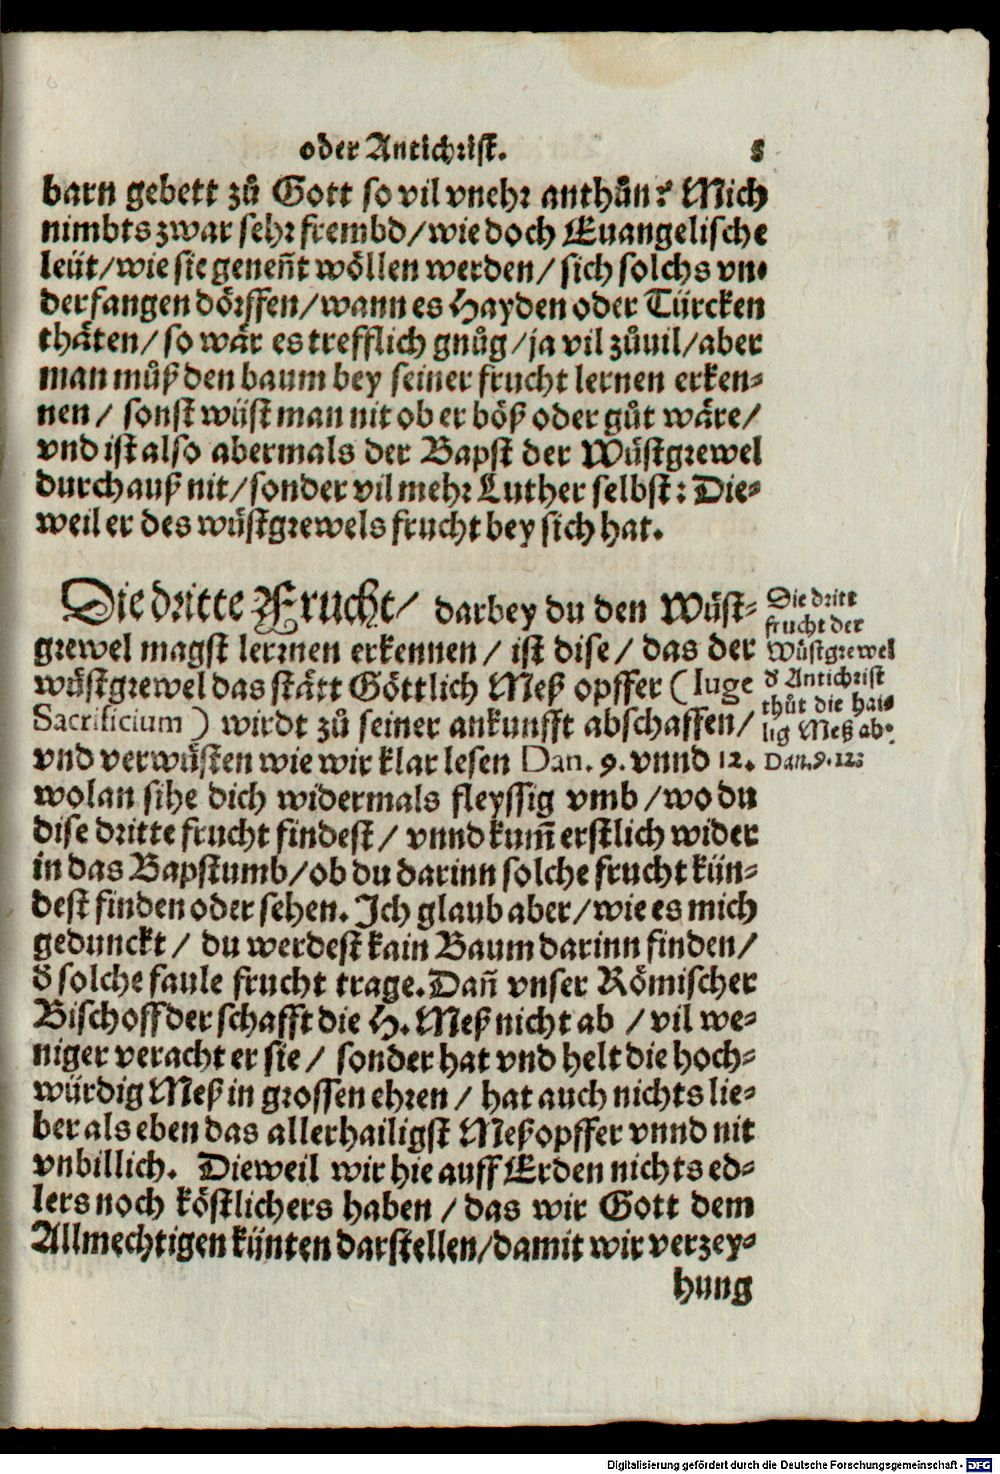 oder Antichrist. 5
barn gebett zů Gott so vil vnehr anthůn? Mich
nimbts zwar sehr frembd/ wie doch Euangelische
leüt/ wie sie geneñt wöllen werden/ sich solchs vn-
derfangen dörffen/ wann es Hayden oder Türcken
thäten/ so wär es trefflich gnůg/ ja vil zůuil/ aber
man můß den baum bey seiner frucht lernen erken-
nen/ sonst wüst man nit ob er böß oder gůt wäre/
vnd ist also abermals der Bapst der Wüstgrewel
durchauß nit/ sonder vil mehr Luther selbst: Die-
weil er des wüstgrewels frucht bey sich hat.
Die dritte Frucht/ darbey du den Wüst-
grewel magst lernnen erkennen/ ist dise/ das der
wüstgrewel das stätt Göttlich Meß opffer (Iuge
Sacrificium) wirdt zů seiner ankunfft abschaffen/
vnd verwüsten wie wir klar lesen Dan. 9. vnnd 12.
wolan sihe dich widermals fleyssig vmb/ wo du
dise dritte frucht findest/ vnnd kum̃ erstlich wider
in das Bapstumb/ ob du darinn solche frucht kün-
dest finden oder sehen. Ich glaub aber/ wie es mich
gedunckt/ du werdest kain Baum darinn finden/
d̕ solche faule frucht trage. Dañ vnser Römischer
Bischoff der schafft die H. Meß nicht ab/ vil we-
niger veracht er sie/ sonder hat vnd helt die hoch-
würdig Meß in grossen ehren/ hat auch nichts lie-
ber als eben das allerhailigst Meßopffer vnnd nit
vnbillich. Dieweil wir hie auff Erden nichts ed-
lers noch köstlichers haben/ das wir Gott dem
Allmechtigen künten darstellen/ damit wir verzey-
hung
Die dritt
frucht der
Wüstgrewel
d̕ Antichrist
thůt die hai-
lig Meß ab.
Dan. 9. 12:
Digitalisierung gefördert durch die Deutsche Forschungsgemeinschaft - DFG